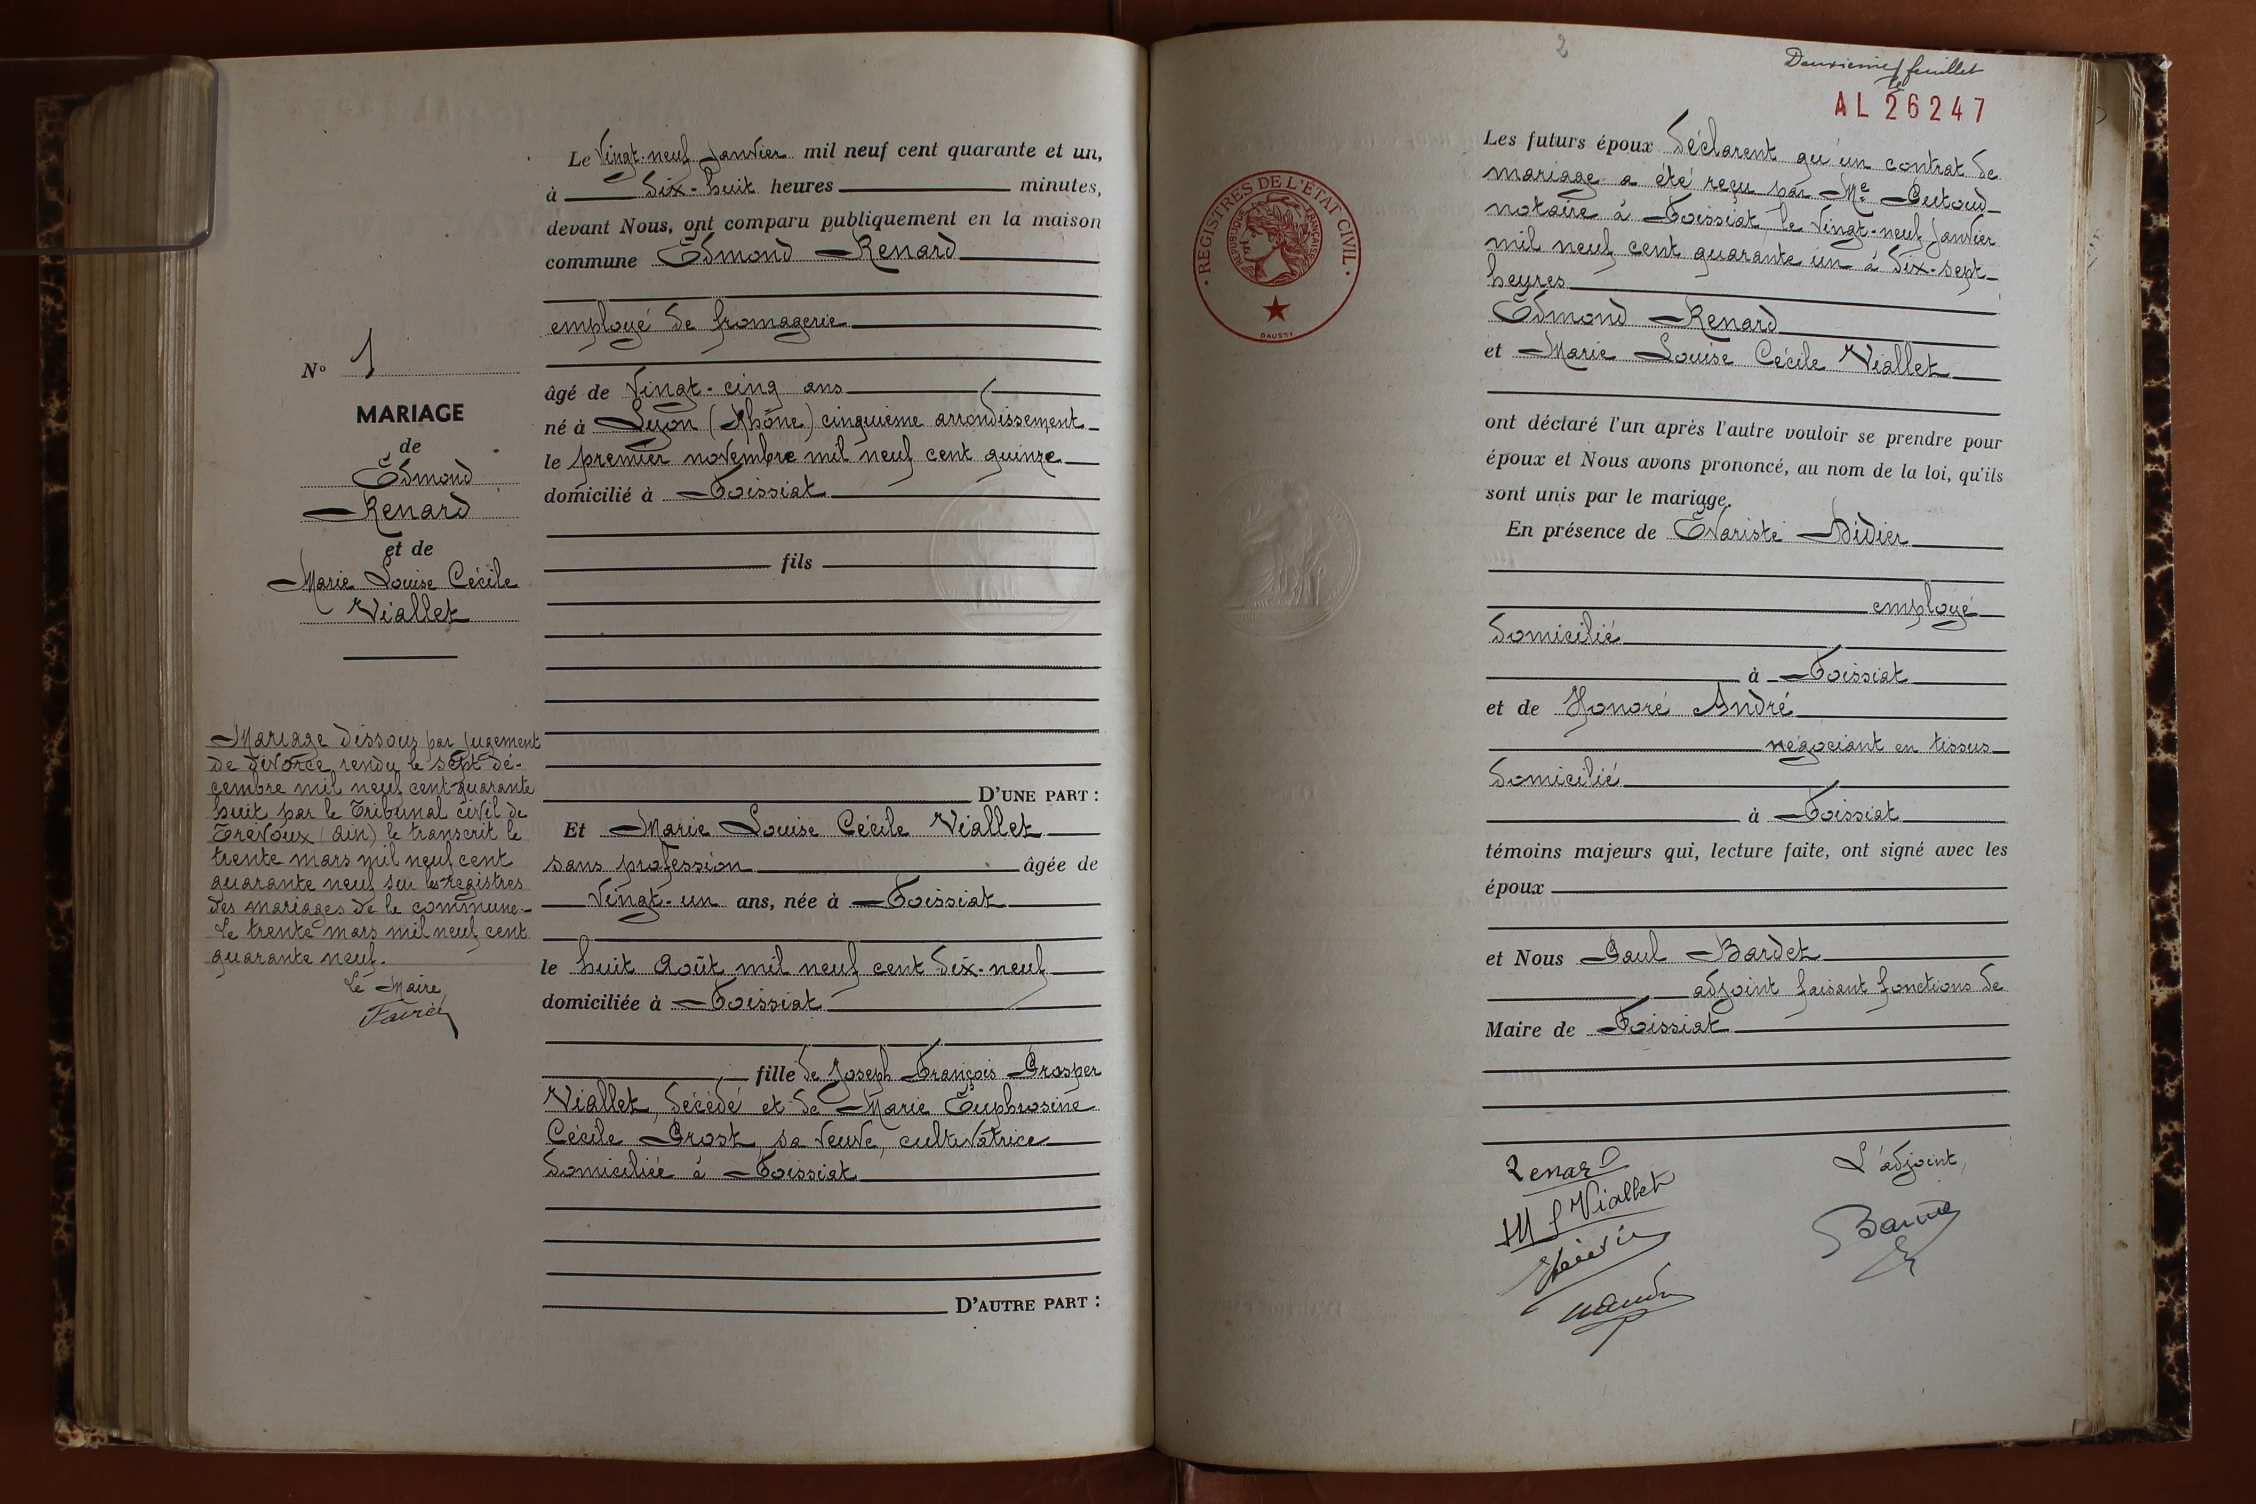 N° 1
MARIAGE
de
Edmond
Renard
et de
Marie Louise Cécile
Viallet
Mariage dissous par jugement
de divorce rendu le sept dé-
cembre mil neuf cent quarante
huit par le Tribunal civil de
Trévoux (Ain) le transcrit le
trente mars mil neuf cent
quarante neuf sur les registres
des mariages de la commune.
Le trente mars mil neuf cent
quarante neuf.
Le Maire
Le Vingt-neuf Janvier mil neuf cent quarante et un,
à dix-huit heures minutes,
devant Nous, ont comparu publiquement en la maison
commune Edmond Renard
employé de fromagerie
âgé de Vingt-cinq ans
né à Lyon (Rhône) cinquième arrondissement
le premier novembre mil neuf cent quinze
domicilié à Foissiat
fils
D'UNE PART :
Et Marie Louise Cécile Viallet
sans profession âgée de
Vingt-un ans, née à Foissiat
le huit Août mil neuf cent dix-neuf
domiciliée à Foissiat
fille de Joseph François Prosper
Viallet, décédé et de Marie Euphrosine
Cécile Prost, sa veuve, cultivatrice
domiciliée à Foissiat
D'AUTRE PART :
2
Deuxième feuillet
AL 26247
REGISTRES DE L'ETAT CIVIL
REPUBLIQUE FRANÇAISE
DAUSSY
Les futurs époux déclarent qu'un contrat de
mariage a été reçu par Me
notaire à Foissiat le Vingt-neuf Janvier
mil neuf cent quarante un à dix-sept
heures
Edmond Renard
et Marie Louise Cécile Viallet
ont déclaré l'un après l'autre vouloir se prendre pour
époux et Nous avons prononcé, au nom de la loi, qu'ils
sont unis par le mariage.
En présence de Evariste Didier
employé
domicilié
à Foissiat
et de Honoré André
négociant en tissus
domicilié
à Foissiat
témoins majeurs qui, lecture faite, ont signé avec les
époux
et Nous Paul Bardet
adjoint faisant fonctions de
Maire de Foissiat
Renard
M L Viallet
L'adjoint,